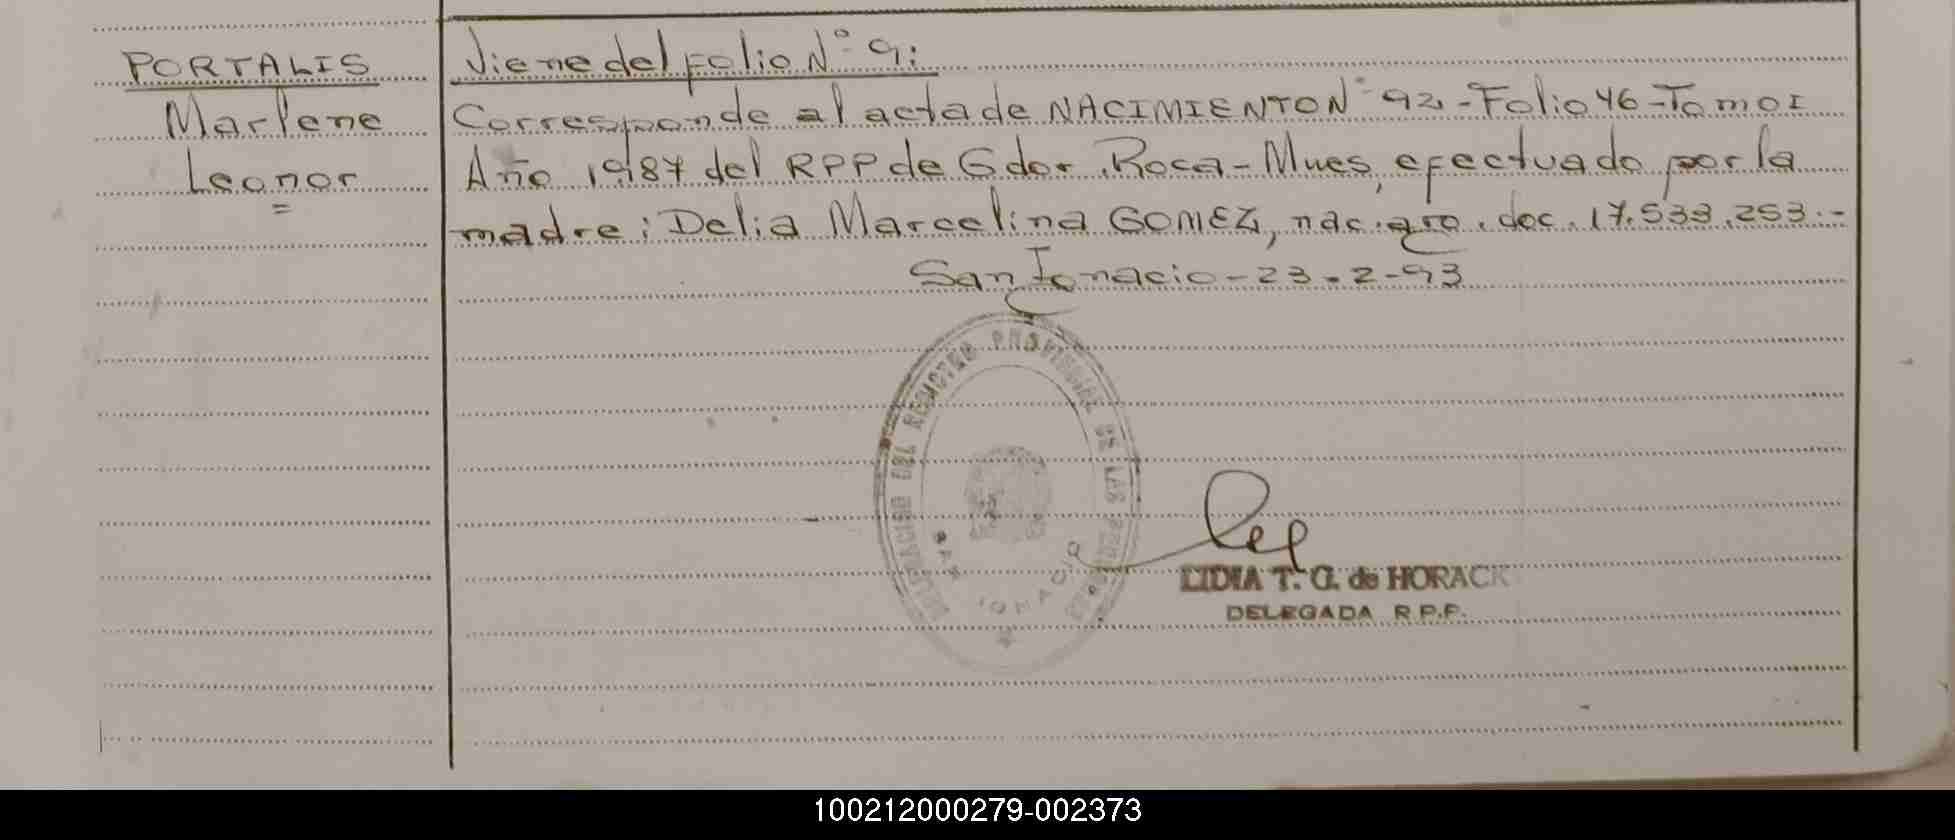 PORTALIS
Marlene
Leonor
Viene del folio N° 9:
Corresponde al acta de NACIMIENTO N° 92 - Folio 46 - Tomo I
Año 1987 del RPP de Gdor. Roca - Mnes, efectuado por la
madre: Delia Marcelina GOMEZ, nac. arg. doc. 17.533.253.-
San Ignacio - 23-2-93
DELEGACION DEL REGISTRO PROVINCIAL DE LAS PERSONAS
SAN IGNACIO
LIDIA T. G. de HORACK
DELEGADA R.P.P.
100212000279-002373